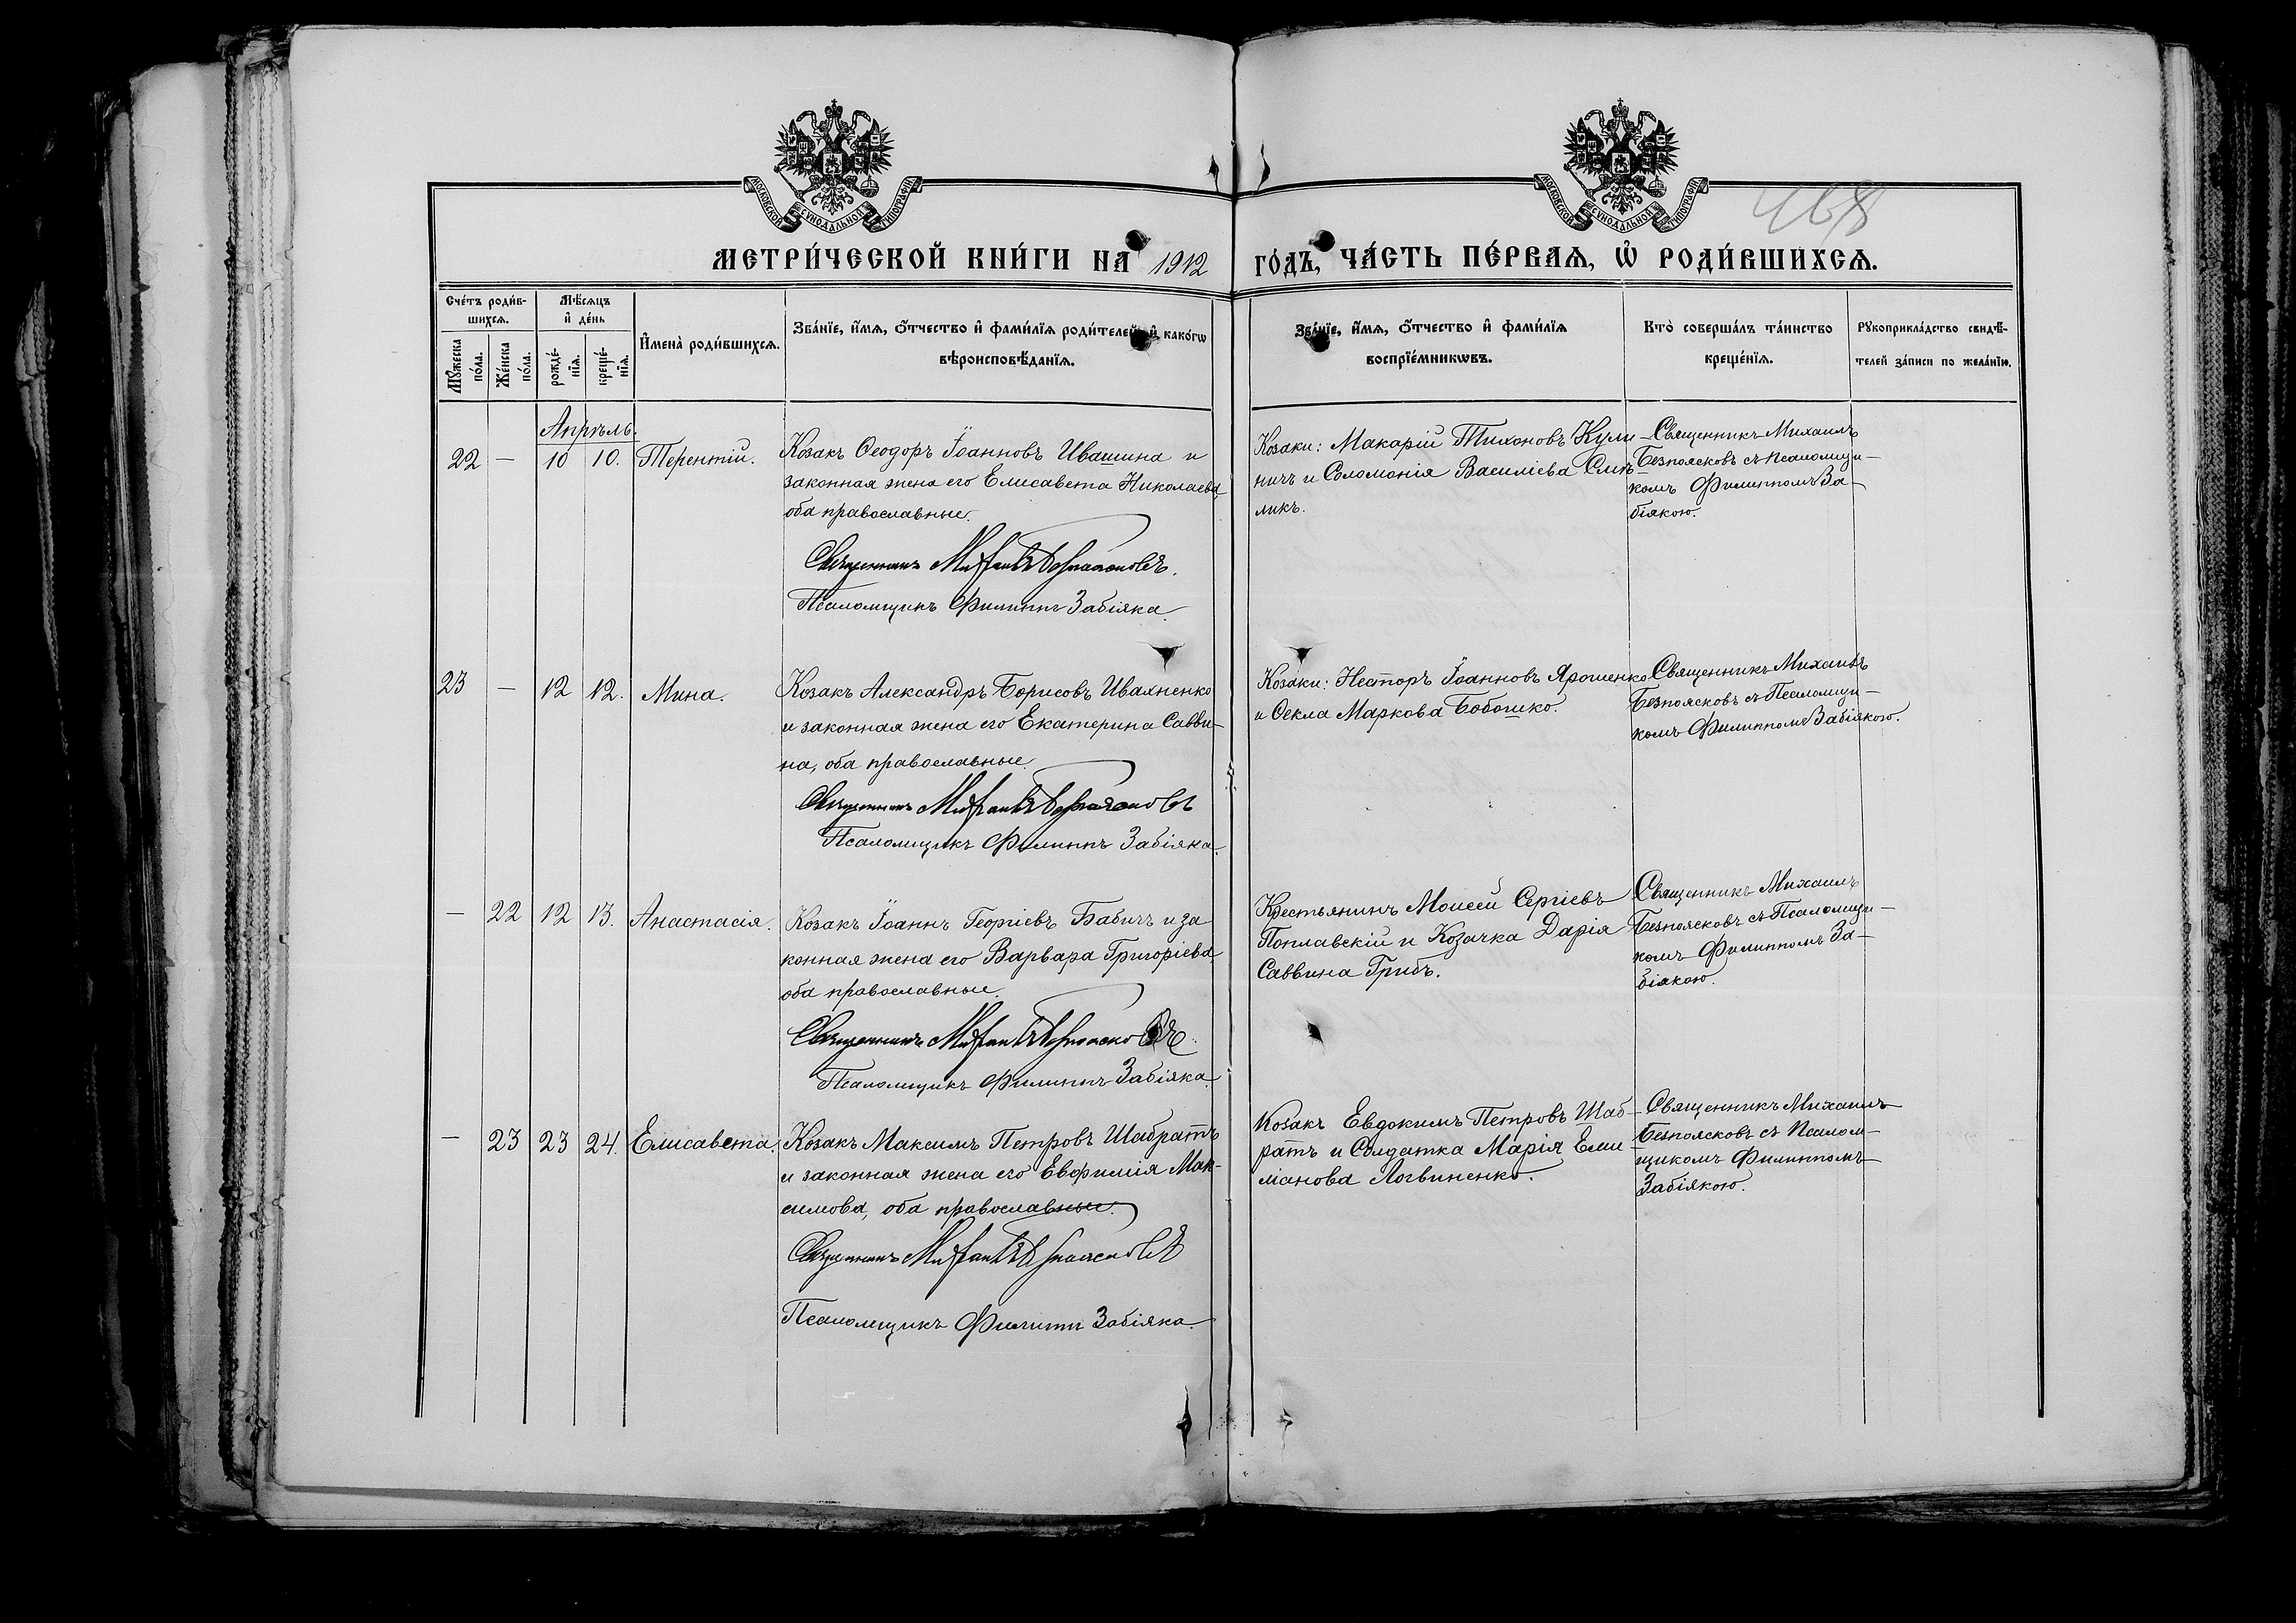 МОСКОВСКОЙ СѴНОДАЛЬНОЙ ТИПОГРАФІИ
МОСКОВСКОЙ СѴНОДАЛЬНОЙ ТИПОГРАФІИ
468
МЕТРИ́ЧЕСКОЙ КНИ́ГИ НА 1912 ГО́ДЪ, ЧА́СТЬ ПЕ́РВАЯ, Ѡ РОДИ́ВШИХСЯ.
Сче́тъ роди́в-
шихся.
Мѣ́сяцъ
и҆ де́нь
Мꙋ́жеска
по́ла.
Же́нска
по́ла.
рожде́-
нїя.
креще́-
нїя.
И҆мена̀ роди́вшихся.
Зва́нїе, и҆́мя, ѻ҆́тчество и҆ фамѝлїя роди́телей, и҆ како́гѡ
вѣроисповѣ́данїя.
Зва́нїе, и҆́мя, ѻ҆́тчество и҆ фами́лїя
воспрїе́мникѡвъ.
Кто̀ соверша́лъ та́инство
креще́нїя.
Рꙋкоприкла́дство свидѣ́-
телей за́писи по жела́нїю.
Апрѣль.
22 — 10 10. Терентій.
Козакъ Ѳеодоръ Іоанновъ Ивашина и
законная жена его Елисавета Николаева,
оба православные.
Священникъ Михаилъ Безпоясковъ.
Псаломщикъ Филиппъ Забіяка.
Козаки: Макарій Тихоновъ Кули-
ничъ и Соломонія Василіева Смѣ-
ликъ.
Священникъ Михаилъ
Безпоясковъ съ псаломщи-
комъ Филиппомъ За-
біякою.
23 — 12 12. Мина.
Козакъ Александръ Борисовъ Ивахненко
и законная жена его Екатерина Савви-
на, оба православные.
Священникъ Михаилъ Безпоясковъ
Псаломщикъ Филиппъ Забіяка.
Козаки: Несторъ Іоанновъ Ярошенко
и Ѳекла Маркова Бобошко.
Священникъ Михаилъ
Безпоясковъ съ Псаломщи-
комъ Филиппомъ Забіякою.
— 22 12 13. Анастасія.
Козакъ Іоаннъ Георгіевъ Бабичъ и за
конная жена его Варвара Григоріева,
оба православные.
Священникъ Михаилъ Безпоясковъ.
Псаломщикъ Филиппъ Забіяка.
Крестьянинъ Моисей Сергіевъ
Поплавскій и Козачка Дарія
Саввина Грибъ.
Священникъ Михаилъ
Безпоясковъ съ Псаломщи-
комъ Филиппомъ За-
біякою.
— 23 23 24. Елисавета.
Козакъ Максимъ Петровъ Шабратъ
и законная жена его Евфимія Мак-
симова, оба православные.
Священникъ Михаилъ Безпоясковъ
Псаломщикъ Филиппъ Забіяка.
Козакъ Евдокимъ Петровъ Шаб-
ратъ и Солдатка Марія Еми-
ліанова Логвиненко.
Священникъ Михаилъ
Безпоясковъ съ Псалом-
щикомъ Филиппомъ
Забіякою.